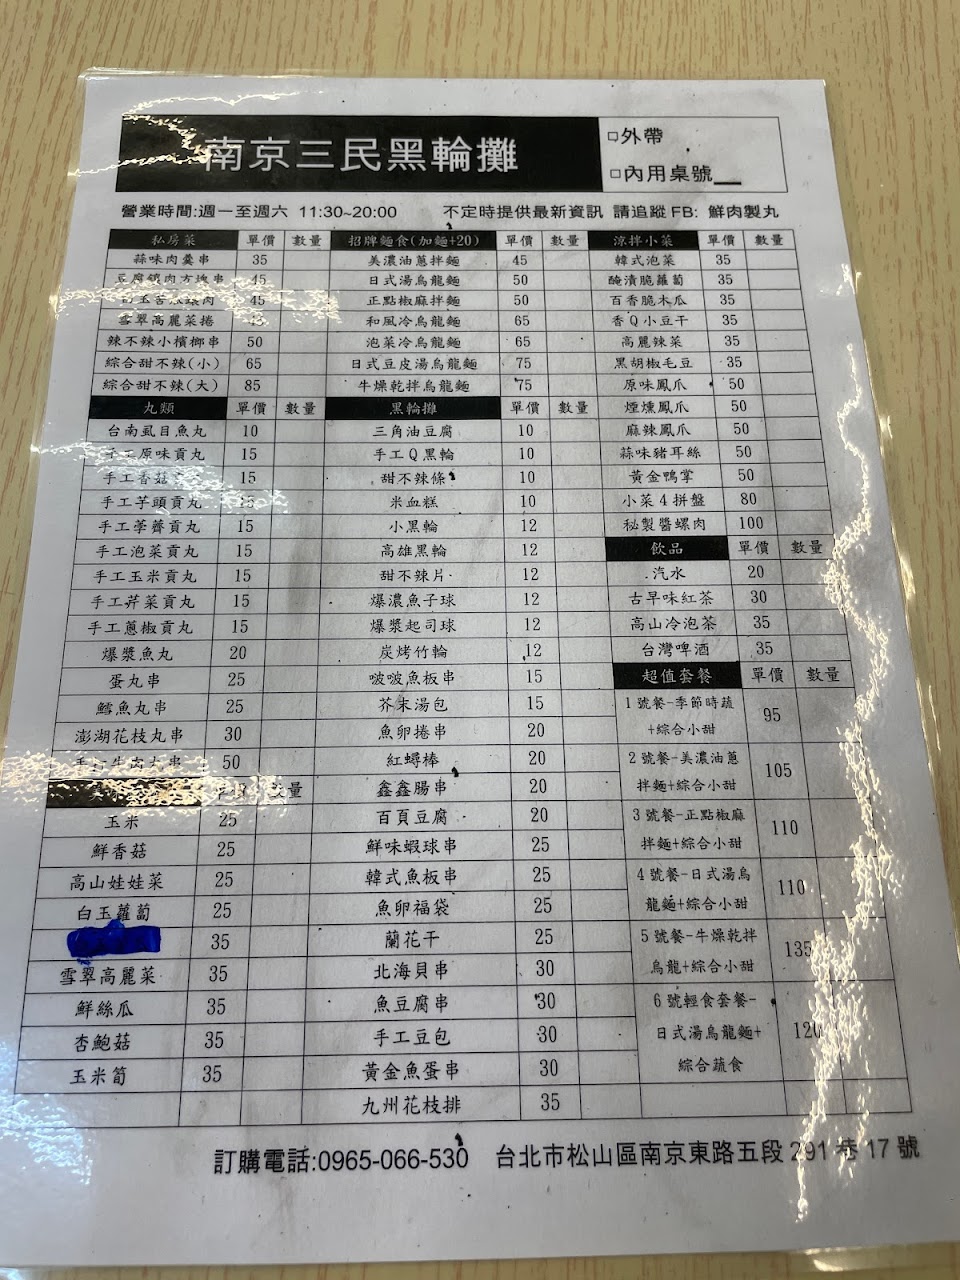 南京三民黑輪攤
□外帶
□內用桌號__
營業時間:週一至週六 11:30~20:00 不定時提供最新資訊 請追蹤FB: 鮮肉製丸
私房菜 單價 數量
蒜味肉羹串 35
豆腐鑲肉方塊串 45
白玉苦瓜鑲肉 45
雪翠高麗菜捲 45
辣不辣小檳榔串 50
綜合甜不辣(小) 65
綜合甜不辣(大) 85
丸類 單價 數量
台南虱目魚丸 10
手工原味貢丸 15
手工香菇
手工芋頭貢丸 15
手工荸薺貢丸 15
手工泡菜貢丸 15
手工玉米貢丸 15
手工芹菜貢丸 15
手工蔥椒貢丸 15
爆漿魚丸 20
蛋丸串 25
鱈魚丸串 25
澎湖花枝丸串 30
手工牛肉丸串 50
單價 數量
玉米 25
鮮香菇 25
高山娃娃菜 25
白玉蘿蔔 25
35
雪翠高麗菜 35
鮮絲瓜 35
杏鮑菇 35
玉米筍 35
招牌麵食(加麵+20) 單價 數量
美濃油蔥拌麵 45
日式湯烏龍麵 50
正點椒麻拌麵 50
和風冷烏龍麵 65
泡菜冷烏龍麵 65
日式豆皮湯烏龍麵 75
牛燥乾拌烏龍麵 75
黑輪攤 單價 數量
三角油豆腐 10
手工Q黑輪 10
甜不辣條 10
米血糕 10
小黑輪 12
高雄黑輪 12
甜不辣片 12
爆濃魚子球 12
爆漿起司球 12
炭烤竹輪 12
啵啵魚板串 15
芥末湯包 15
魚卵捲串 20
紅蟳棒 20
鑫鑫腸串 20
百頁豆腐 20
鮮味蝦球串 25
韓式魚板串 25
魚卵福袋 25
蘭花干 25
北海貝串 30
魚豆腐串 30
手工豆包 30
黃金魚蛋串 30
九州花枝排 35
涼拌小菜 單價 數量
韓式泡菜 35
醃漬脆蘿蔔 35
百香脆木瓜 35
香Q小豆干 35
高麗辣菜 35
黑胡椒毛豆 35
原味鳳爪 50
煙燻鳳爪 50
麻辣鳳爪 50
蒜味豬耳絲 50
黃金鴨掌 50
小菜4拼盤 80
秘製醬螺肉 100
飲品 單價 數量
汽水 20
古早味紅茶 30
高山冷泡茶 35
台灣啤酒 35
超值套餐 單價 數量
1號餐-季節時蔬
+綜合小甜 95
2號餐-美濃油蔥
拌麵+綜合小甜 105
3號餐-正點椒麻
拌麵+綜合小甜 110
4號餐-日式湯烏
龍麵+綜合小甜 110
5號餐-牛燥乾拌
烏龍+綜合小甜 135
6號輕食套餐-
日式湯烏龍麵+ 120
綜合蔬食
訂購電話:0965-066-530 台北市松山區南京東路五段291巷17號